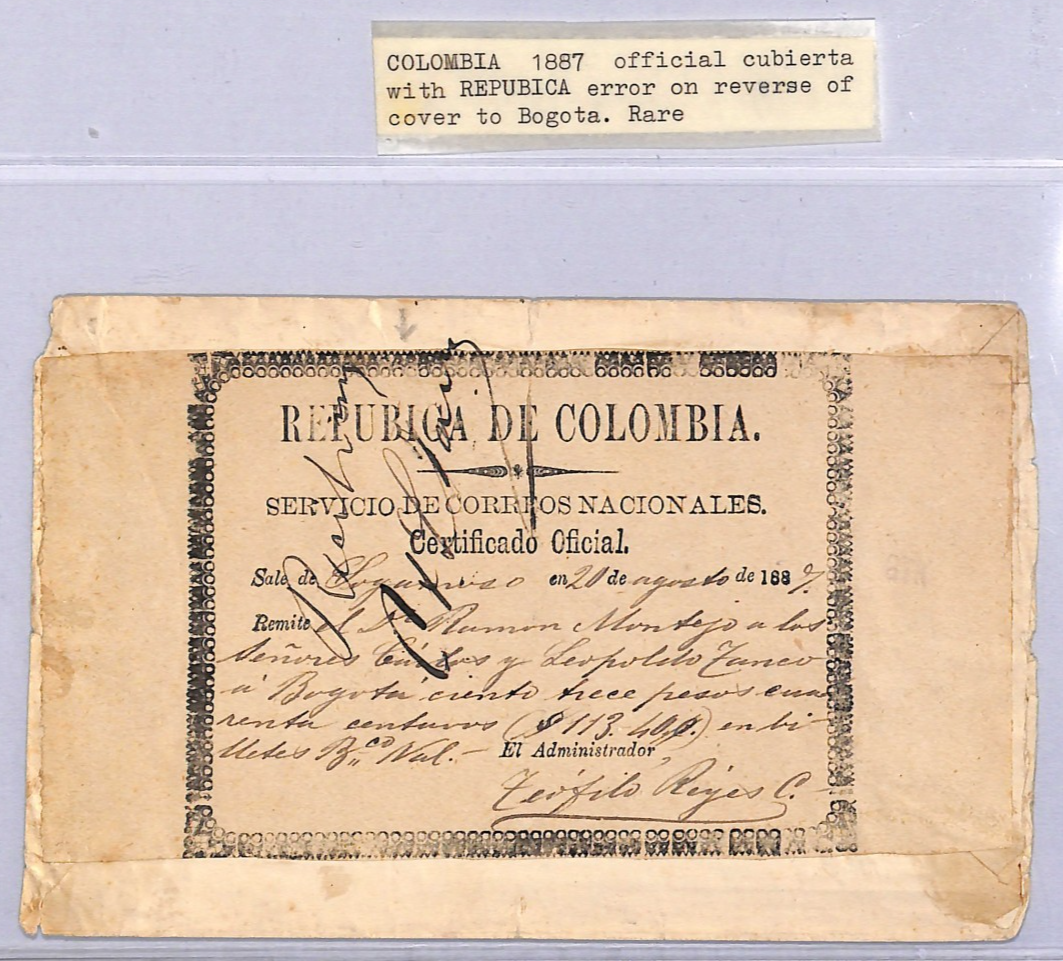 COLOMBIA 1887 official cubierta
with REPUBICA error on reverse of
cover to Bogota. Rare
REPUBICA DE COLOMBIA.
SERVICIO DE CORREOS NACIONALES.
Certificado Oficial.
Sale de Sogamoso en 20 de agosto de 1887.
Remite el Dr Ramon Montejo a los
señores Cárlos y Leopoldo Tanco
á Bogotá ciento trece pesos cua
renta centavos ($ 113.40¢.) en bi-
lletes Bco Nal.— El Administrador,
Teófilo Reyes C.